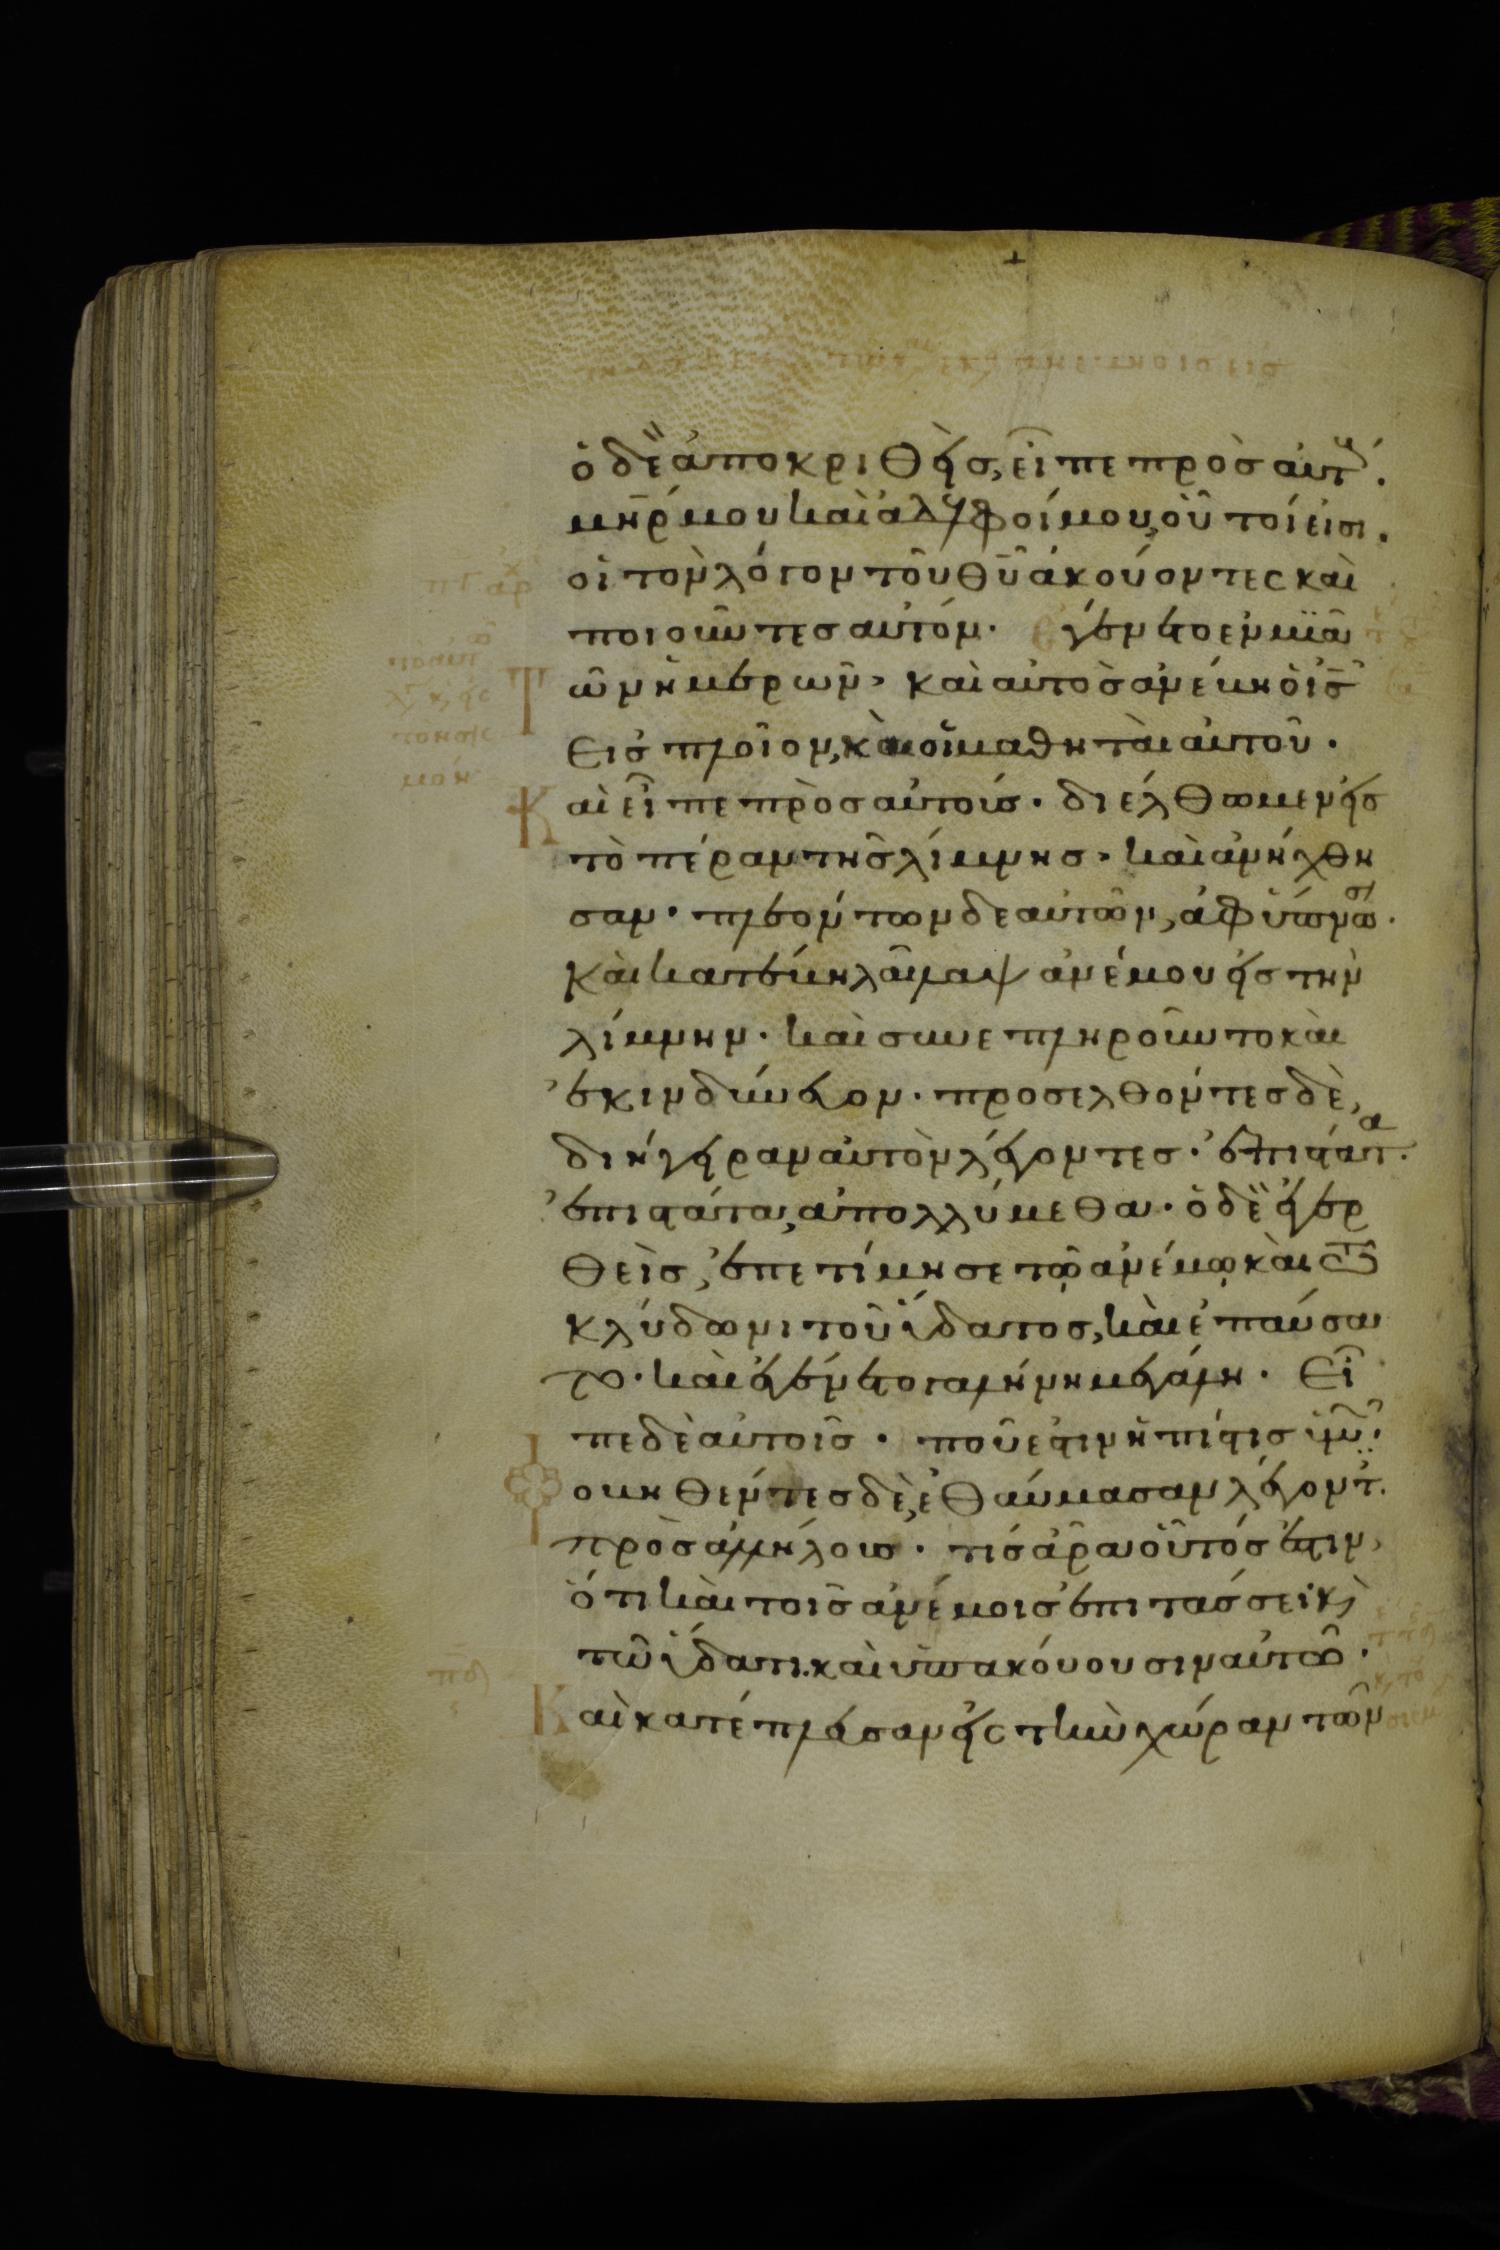 ὁ δὲ ἀποκριθεὶς, εἶπε πρὸς αὐτ(ούς)·
μη̅ρ μου καὶ ἀδελφοί μου, οὗτοί εἰσι·
οἱ τὸν λόγον τοῦ θ̅υ ἀκούοντες καὶ
ποιοῦντες αὐτόν· ἐγένετο ἐν μιᾶ
τῶν ἡμερῶν, καὶ αὐτὸς ἀνέβη ὁ ι̅ς
εἰς πλοῖον, καὶ οἱ μαθηταὶ αὐτοῦ·
Καὶ εἶπε πρὸς αὐτούς· διέλθωμεν εἰς
τὸ πέραν τῆς λίμνης· καὶ ἀνήχθη
σαν· πλεόντων δὲ αὐτῶν, ἀφύπνωσ·
καὶ κατέβη λαῖλαψ ἀνέμου εἰς τὴν
λίμνην· καὶ συνεπληροῦντο καὶ
ἐκινδύνευον· προσελθόντες δὲ,
διήγειραν αὐτὸν λέγοντες· ἐπιστάτα·
ἐπιστάτα, ἀπολλύμεθα· ὁ δὲ ἐγερ
θεὶς, ἐπετίμησε τῷ ἀνέμῳ καὶ τῷ
κλύδωνι τοῦ ὕδατος, καὶ ἐπαύσαν
το· καὶ ἐγένετο γαλήνη μεγάλη· Εἶ
πε δὲ αὐτοῖς· ποῦ ἐστιν ἡ πίστις ὑμῶν·
Φοβηθέντες δὲ, ἐθαύμασαν λέγοντ·
πρὸς ἀλλήλους· τίς ἄρα οὗτός ἐστιν,
ὅτι καὶ τοῖς ἀνέμοις ἐπιτάσσει κ(αὶ)
τῷ ὕδατι· καὶ ὑπακούουσιν αὐτῷ·
Καὶ κατέπλευσαν εἰς τὴν χώραν τῶν